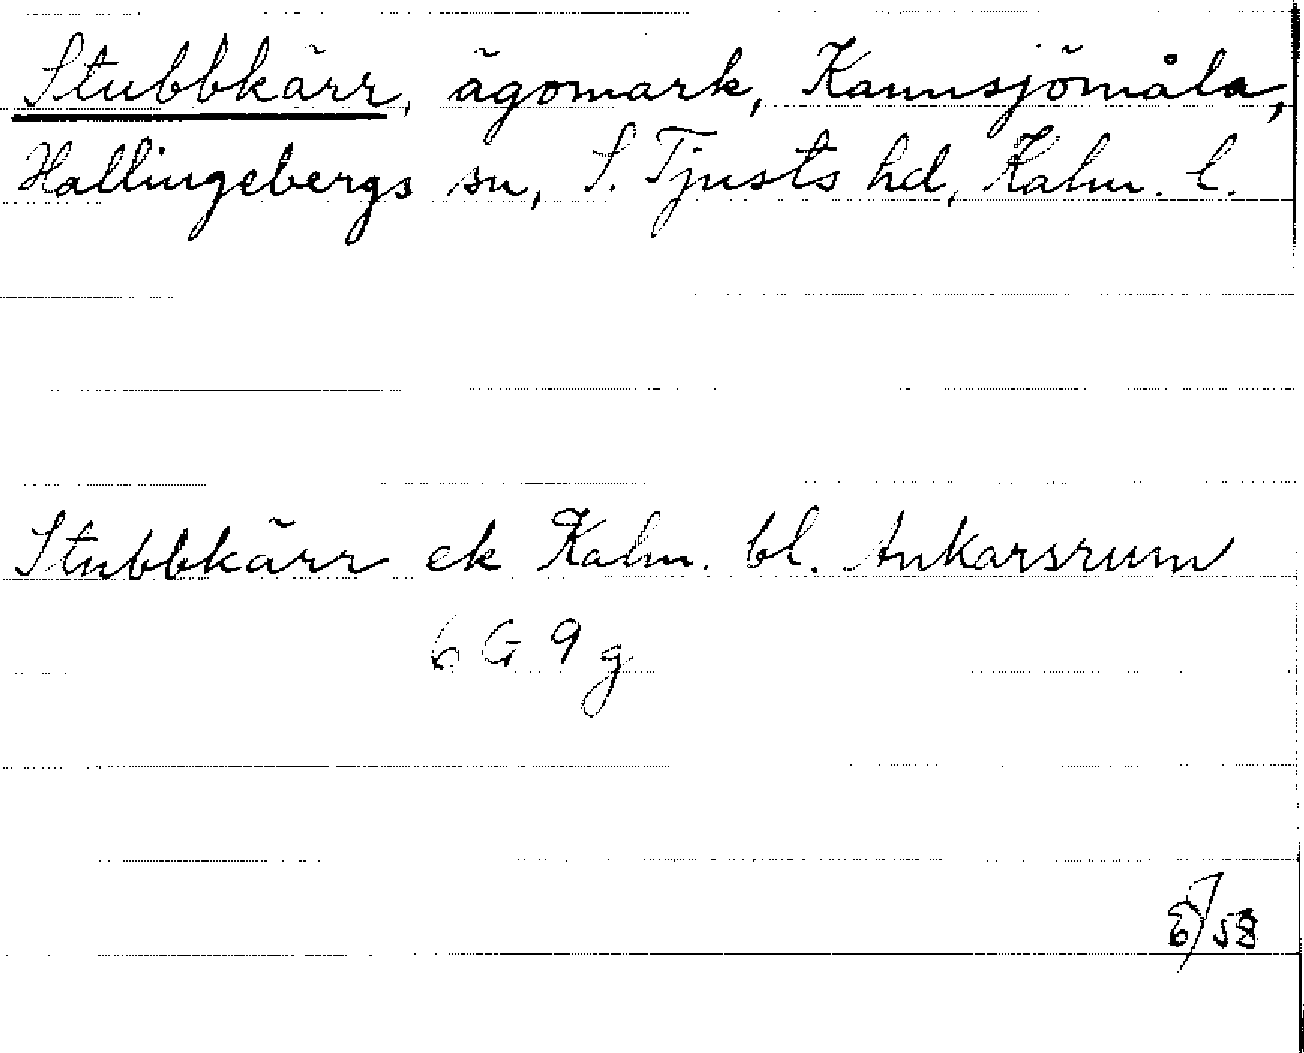 Stubbkärr, ägomark, Kannsjömåla,
Hallingebergs sn, S. Tjusts hd, Kalm. l.
Stubbkärr ek Kalm. bl. Ankarsrum
6 G 9 g
58